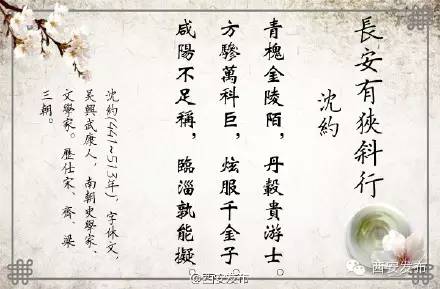 長安有狹斜行
沈約
青槐金陵陌，丹轂貴游士。
方驂萬科巨，炫服千金子。
咸陽不足稱，臨淄孰能擬。
沈約(441~513年)，字休文，
吳興武康人，南朝史學家、
文學家。歷仕宋、齊、梁
三朝。
@西安发布
西安发布